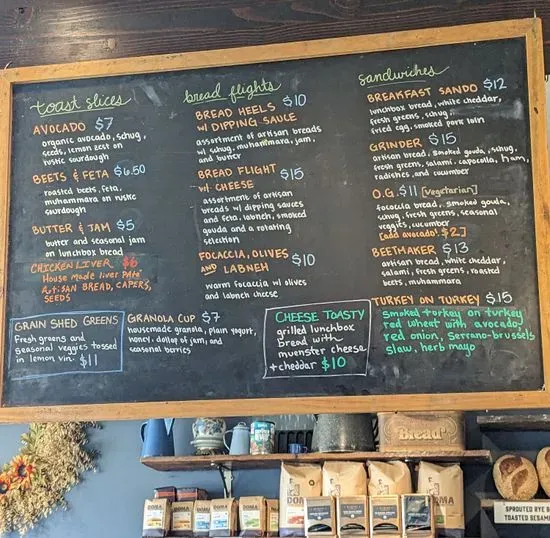 toast slices
AVOCADO $7
organic avocado, schug,
seeds, lemon zest on
rustic sourdough
BEETS & FETA $6.50
roasted beets, feta,
muhammara on rustic
sourdough
BUTTER & JAM $5
butter and seasonal jam
on lunchbox bread
CHICKEN LIVER $6
House made liver pate
Artisan BREAD, CAPERS,
SEEDS
GRAIN SHED GREENS
Fresh greens and
seasonal veggies tossed
in lemon vin. $11
bread flights
BREAD HEELS $10
w/ DIPPING SAUCE
assortment of artisan breads
w/ schug, muhammara, jam,
and butter
BREAD FLIGHT $15
w/ CHEESE
assortment of artisan
breads w/ dipping sauces
and feta, labneh, smoked
gouda and a rotating
selection
FOCACCIA, OLIVES $10
AND LABNEH
warm focaccia w/ olives
and labneh cheese
GRANOLA CUP $7
housemade granola, plain yogurt,
honey, dollop of jam, and
seasonal berries
CHEESE TOASTY
grilled lunchbox
Bread with
muenster cheese
+ cheddar $10
sandwiches
BREAKFAST SANDO $12
lunchbox bread, white cheddar,
fresh greens, schug,
fried egg, smoked pork loin
GRINDER $15
artisan bread, smoked gouda, schug,
fresh greens, salami, capocolla, ham,
radishes, and cucumber
O.G. $11 [vegetarian]
focaccia bread, smoked gouda,
schug, fresh greens, seasonal
veggies, cucumber
[add avocado! $2]
BEETMAKER $13
artisan bread, white cheddar,
salami, fresh greens, roasted
beets, muhammara
TURKEY ON TURKEY $15
Smoked turkey on turkey
red wheat with avocado,
red onion, serrano-brussels
slaw, herb mayo
Bread
DOMA
DOMA
DOMA
DOMA
DOMA
DOMA
SPROUTED RYE
TOASTED SESAME